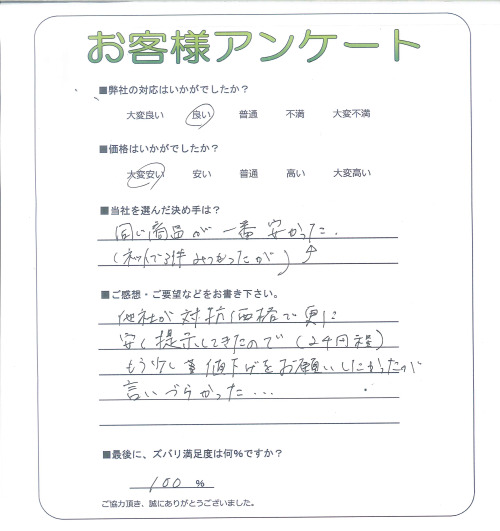 お客様アンケート
■弊社の対応はいかがでしたか？
大変良い 良い 普通 不満 大変不満
■価格はいかがでしたか？
大変安い 安い 普通 高い 大変高い
■当社を選んだ決め手は？
同じ商品が一番安かった.
(ネットで3件みつかったが)↑
■ご感想・ご要望などをお書き下さい。
他社が対抗価格で更に
安く提示してきたので(24円程)
もう少し値下げをお願いしたかったが
言いづらかった...
■最後に、ズバリ満足度は何%ですか？
100 %
ご協力頂き、誠にありがとうございました。